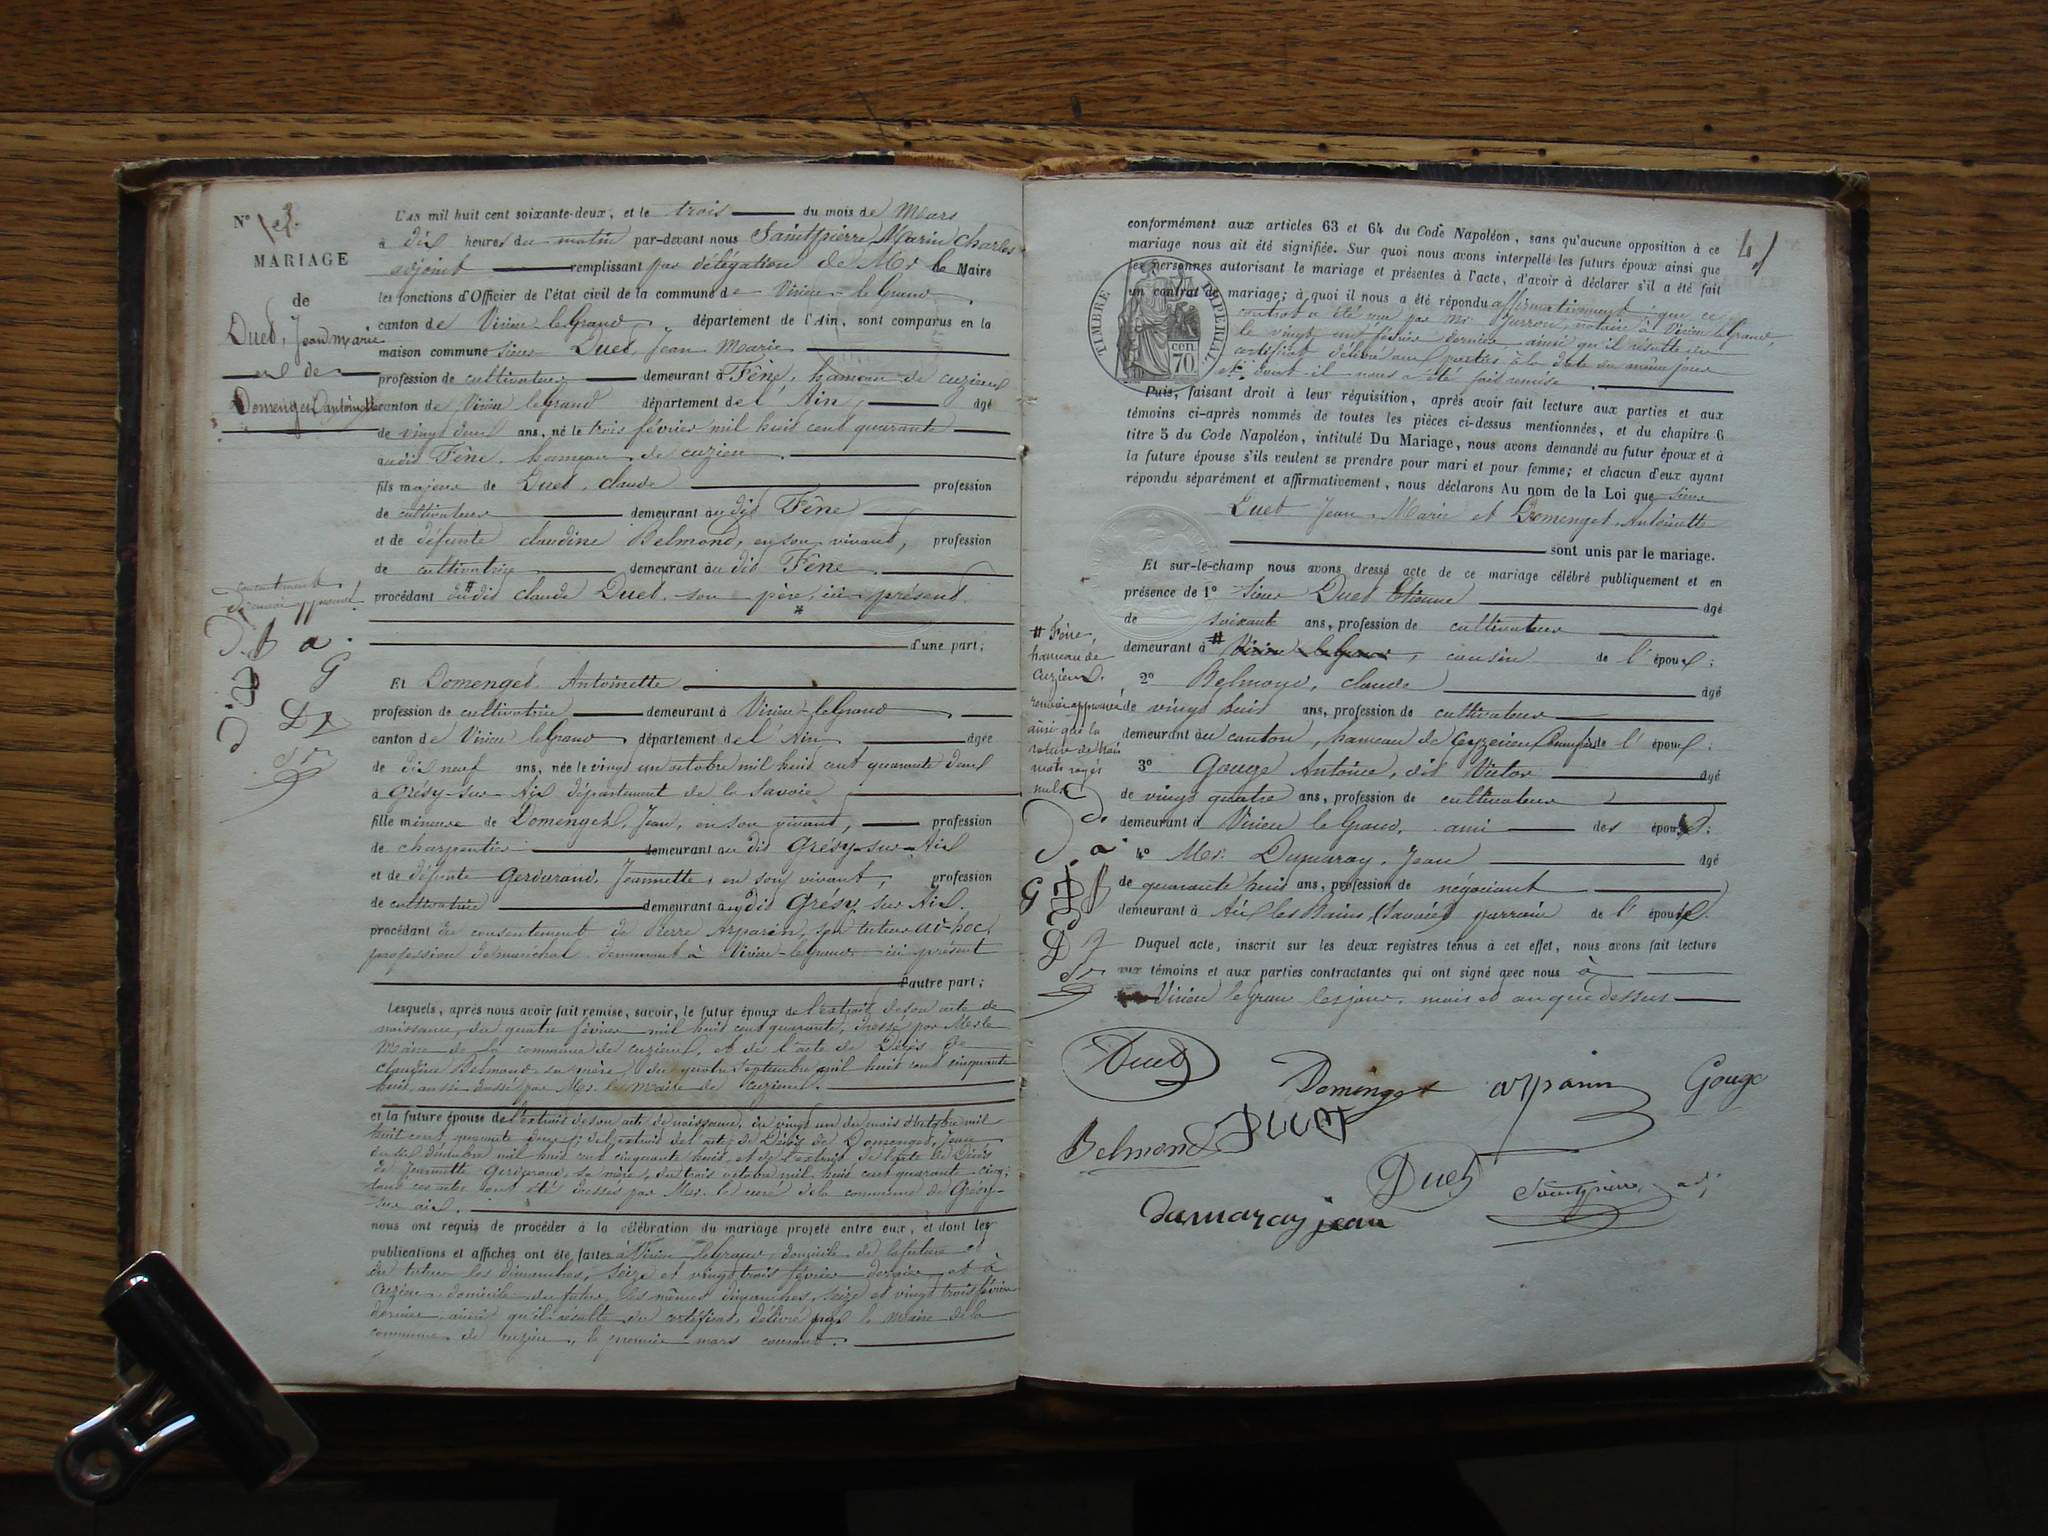 N° 3.
MARIAGE
de
Duet, Jean marie
et de
Domenget antoinette
L'an mil huit cent soixante-deux, et le trois du mois de Mars
à dix heures du matin par-devant nous Saintpierre, Marin Charles
adjoint remplissant par délégation de Mr le Maire
les fonctions d'Officier de l'état civil de la commune de Virieu-le Grand
canton de Virieu-le Grand, département de l'Ain, sont comparus en la
maison commune sieur Duet, Jean Marie
profession de cultivateur demeurant à Fêne, hameau de cuzieu
canton de Virieu le Grand département de l'Ain, âgé
de vingt deux ans, né le trois février mil huit cent quarante
audit Fêne, hameau de cuzieu
fils majeur de Duet, claude profession
de cultivateur demeurant audit Fêne
et de défunte claudine Belmond, en son vivant, profession
de cultivatrice demeurant audit Fêne
procédant du # dit claude Duet, son père, ici présent.
consentement
d'une part;
Et Domenget Antoinette
profession de cultivatrice demeurant à Virieu-le Grand
canton de Virieu le Grand département de l'Ain âgée
de dix neuf ans, née le vingt un octobre mil huit cent quarante deux
à Grésy-sur-Aix département de la Savoie
fille mineure de Domenget, Jean, en son vivant, profession
de charpentier demeurant au dit Grésy-sur-Aix
et de défunte Gerdurand, Jeannette, en son vivant, profession
de cultivatrice demeurant audit Grésy sur Aix.
procédant du consentement de Pierre Arparin, son tuteur ad-hoc,
profession de maréchal demeurant à Virieu-le Grand ici présent
d'autre part;
Lesquels, après nous avoir fait remise, savoir, le futur époux de l'extrait de son acte de
naissance, du quatre février mil huit cent quarante, dressé par Mr le
Maire de la commune de cuzieu, et de l'acte de Décès de
Claudine Belmond sa mère, du quatre septembre mil huit cent cinquante
huit, aussi dressé par Mr. le Maire de Cuzieu.
et la future épouse de l'extrait de son acte de naissance, du vingt un du mois d'octobre mil
huit cent quarante deux; de l'extrait de l'acte de Décès de Domenget, Jean
du six décembre mil huit cent cinquante huit, et de l'extrait de l'acte de Décès
de Jeannette Gerdurand, sa mère, du trois octobre mil huit cent quarante cinq;
tous ces actes ont été dressés par Mr. le curé de la commune de Grésy-
sur aix.
nous ont requis de procéder à la célébration du mariage projeté entre eux, et dont les
publications et affiches ont été faites à Virieu le Grand, domicile de la future et
du tuteur les dimanches, seize et vingt trois février dernier et à
Cuzieu domicile du futur, les mêmes dimanches, seize et vingt trois février
dernier ainsi qu'il résulte du certificat, délivré par le Maire de la
commune de cuzieu, le premier mars courant.
41
conformément aux articles 63 et 64 du Code Napoléon, sans qu'aucune opposition à ce
mariage nous ait été signifiée. Sur quoi nous avons interpellé les futurs époux ainsi que
les personnes autorisant le mariage et présentes à l'acte, d'avoir à déclarer s'il a été fait
un contrat de mariage; à quoi il nous a été répondu affirmativement; que ce
contrat a été reçu par Mr notaire à Virieu le Grand,
le vingt un février dernier, ainsi qu'il résulte du
certificat délivré aux parties à la date du même jour
et dont il nous a été fait remise.
TIMBRE IMPERIAL
70 cen
Puis, faisant droit à leur réquisition, après avoir fait lecture aux parties et aux
témoins ci-après nommés de toutes les pièces ci-dessus mentionnées, et du chapitre 6
titre 5 du Code Napoléon, intitulé Du Mariage, nous avons demandé au futur époux et à
la future épouse s'ils veulent se prendre pour mari et pour femme; et chacun d'eux ayant
répondu séparément et affirmativement, nous déclarons Au nom de la Loi que sieur
Duet Jean Marie et Domenget Antoinette
sont unis par le mariage.
Et sur-le-champ nous avons dressé acte de ce mariage célébré publiquement et en
présence de 1° Sieur Duet Etienne âgé
de soixante ans, profession de cultivateur
demeurant à # Virieu le Grand, cousin de l'époux;
2° Belmond, claude âgé
de vingt huit ans, profession de cultivateur
demeurant au canton, hameau de Cuzieu cousin de l'époux;
3° Gouge Antoine, dit Victor âgé
de vingt quatre ans, profession de cultivateur
demeurant à Virieu le Grand, ami des époux;
4° Mr. Dumaray, Jean âgé
de quarante huit ans, profession de négociant
demeurant à Aix les Bains (Savoie) parrain de l'épouse.
Duquel acte, inscrit sur les deux registres tenus à cet effet, nous avons fait lecture
aux témoins et aux parties contractantes qui ont signé avec nous à
Virieu le Grand les jour, mois et an que dessus
# Fêne,
hameau de
Cuzieu.
renvoi approuvé
ainsi que la
rature de trois
mots rayés
nuls
Duet
Domenget
arparin
Gouge
Belmond
DUET
Duet
Saintpierre, adj.
damaray jean